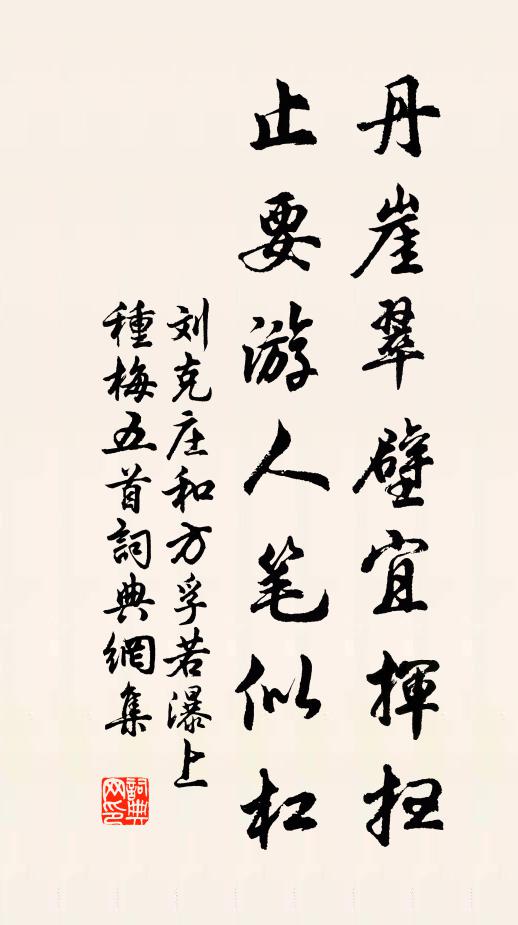 丹崖翠壁宜揮扫
止要游人笔似杠
刘克庄和方孚若瀑上
種梅五首詞典網集
詞典
网印